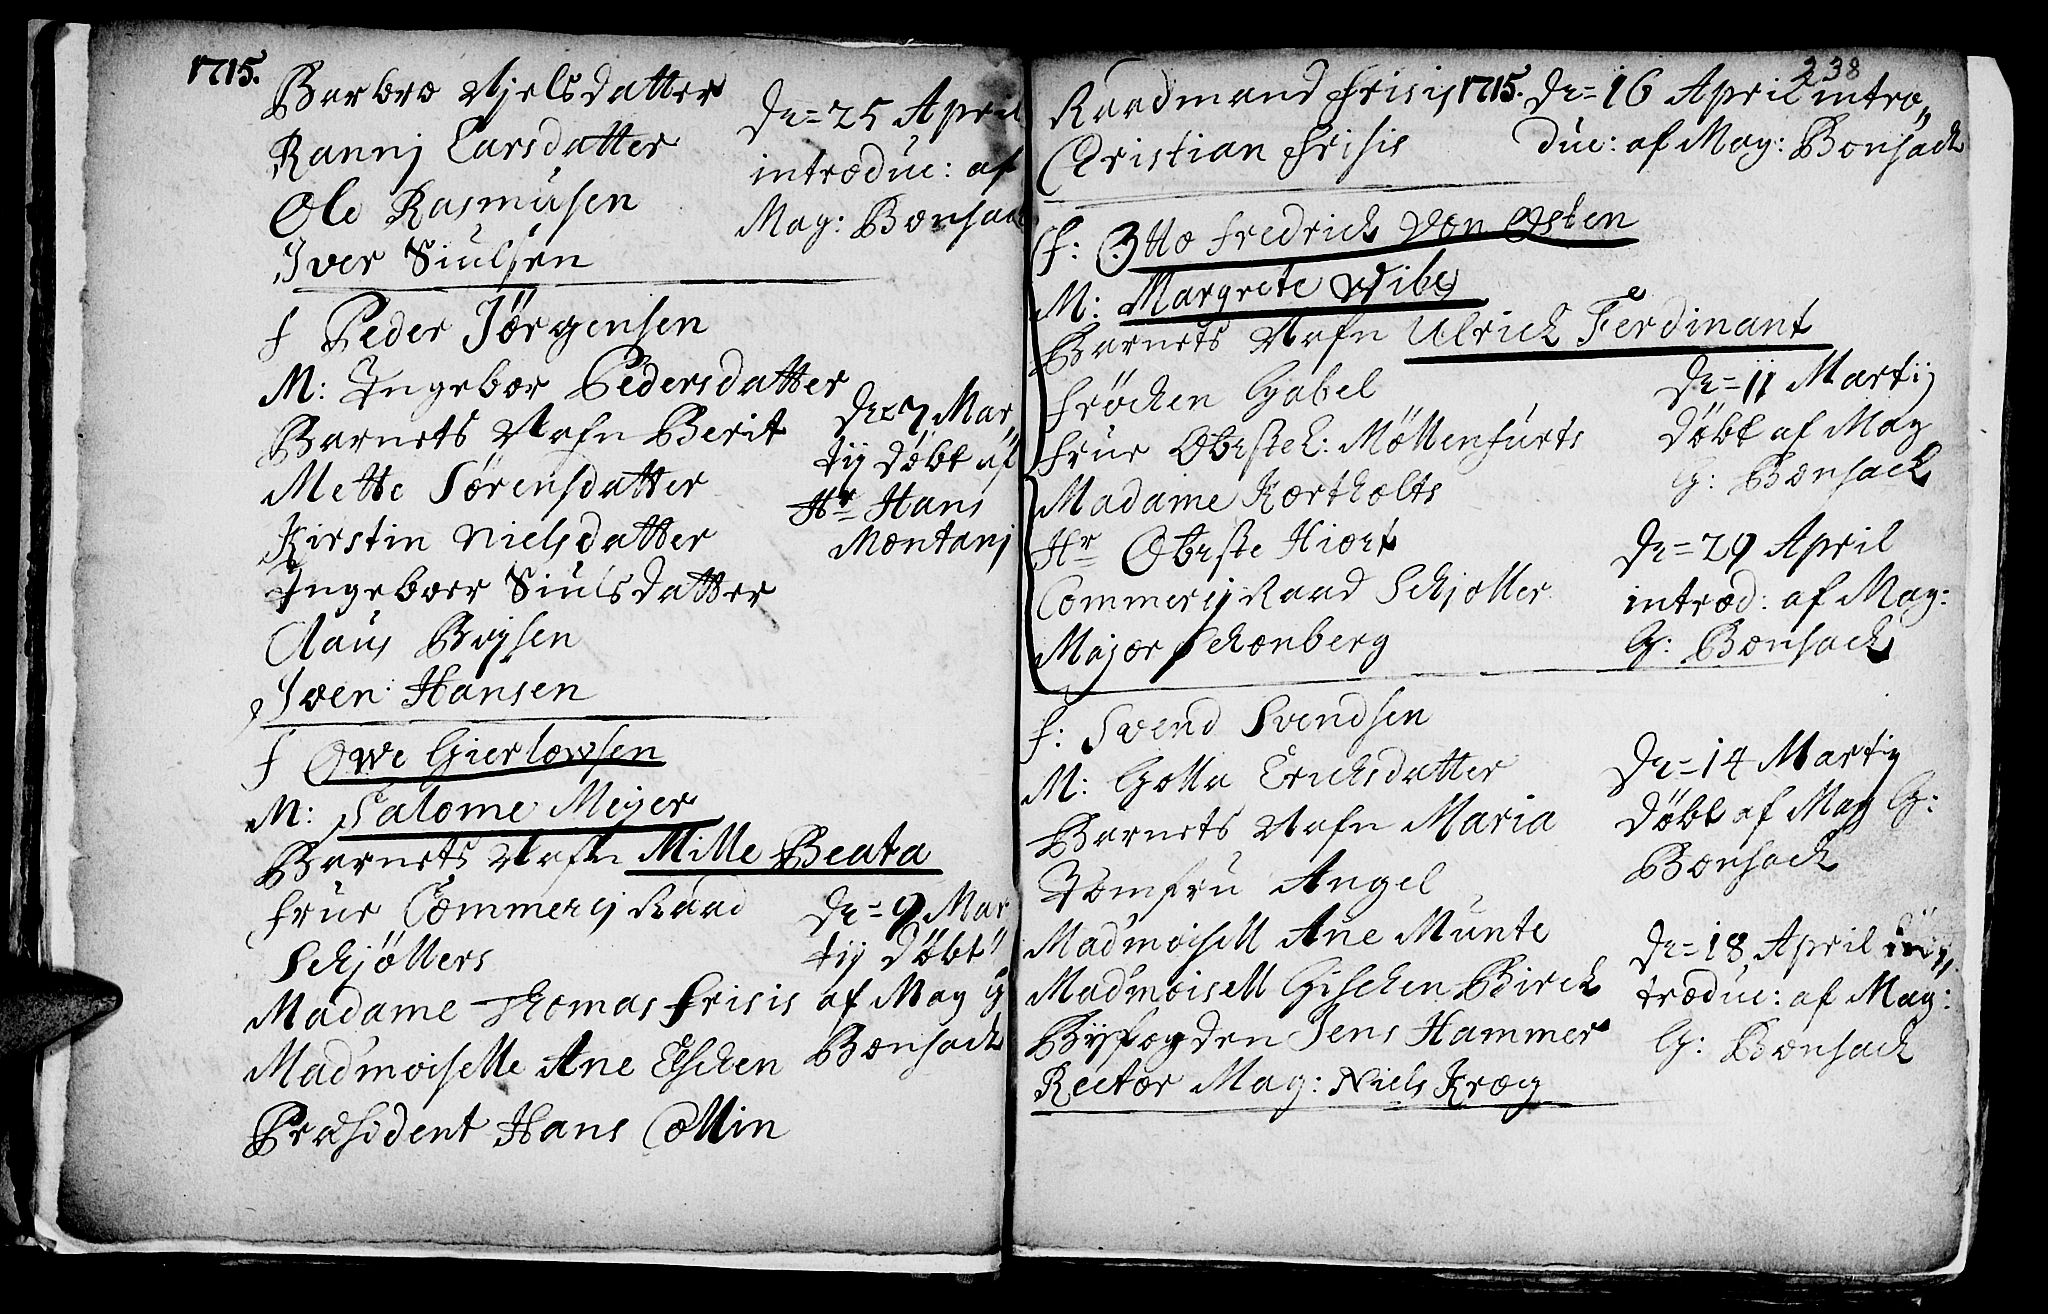 1715.
Barbro Njelsdatter
Rannj Larsdatter
Ole Rasmusen
Iver Siulsen
De= 25 April
introduc: af
Mag: Bonsack
f Peder Jörgensen
M: Ingebor Pedersdatter
Barnets Nafn Berit
Mette Sörensdatter
Kirstin Nielsdatter
Ingeboer Siulsdatter
Claus Boysen
Iven Hansen
De= 7 Mar„
tij döbt af
Hr= Hans
Montanj
f Owe Gierlowsen
M: Salome Meyer
Barnets Nafn Mille Beata
Frue Commercij Raad
Schjöllers
Madame Thomas Frisis
Madmoiselle Ane Eschen
Præsident Hans Collin
De= 9 Mar
tij döbt
af Mag G
Bonsack
238
Raadmand Frisij 1715. De= 16 April intro„
Christian Frisis duc: af Mag: Bonsack
f: Otto Fredrick Von Osten
M: Margrete Wibe
Barnets Nafn Ulrich Ferdinant
Fröcken Gabel
Frue Obestel: Möllenfurts
Madame Kortholts
Hr= Obeste Hiort
Commercij Raad Schjøller
Major Schonberg
De= 11 Martij
döbt af Mag
G: Bonsack
De= 29 April
introd: af Mag:
G: Bonsack
f: Svend Svendsen
M: Golla Ericksdatter
Barnets Nafn Maria
Jomfru Angel
Madmoisell Ane Munte
Madmoisell Gischen Birck
Byfogden Jens Hammer
Rector Mag: Niels Krog
De= 14 Martij
döbt af Mag G:
Bonsack
De= 18 April in„
troduc: af Mag:
G: Bonsack